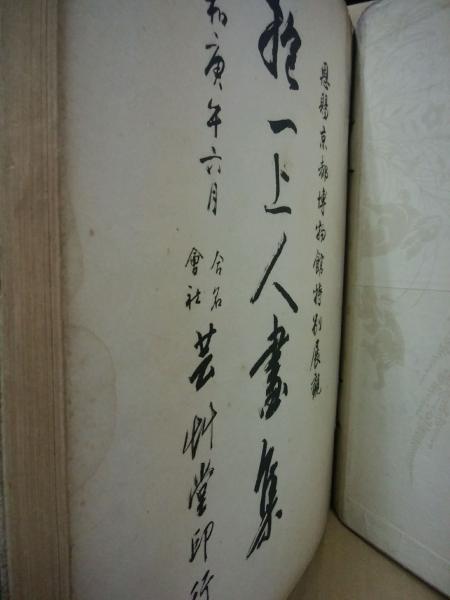 恩賜京都博物館特別展觀
抱一上人畫集
和庚午六月
合名
會社
芸艸堂印行